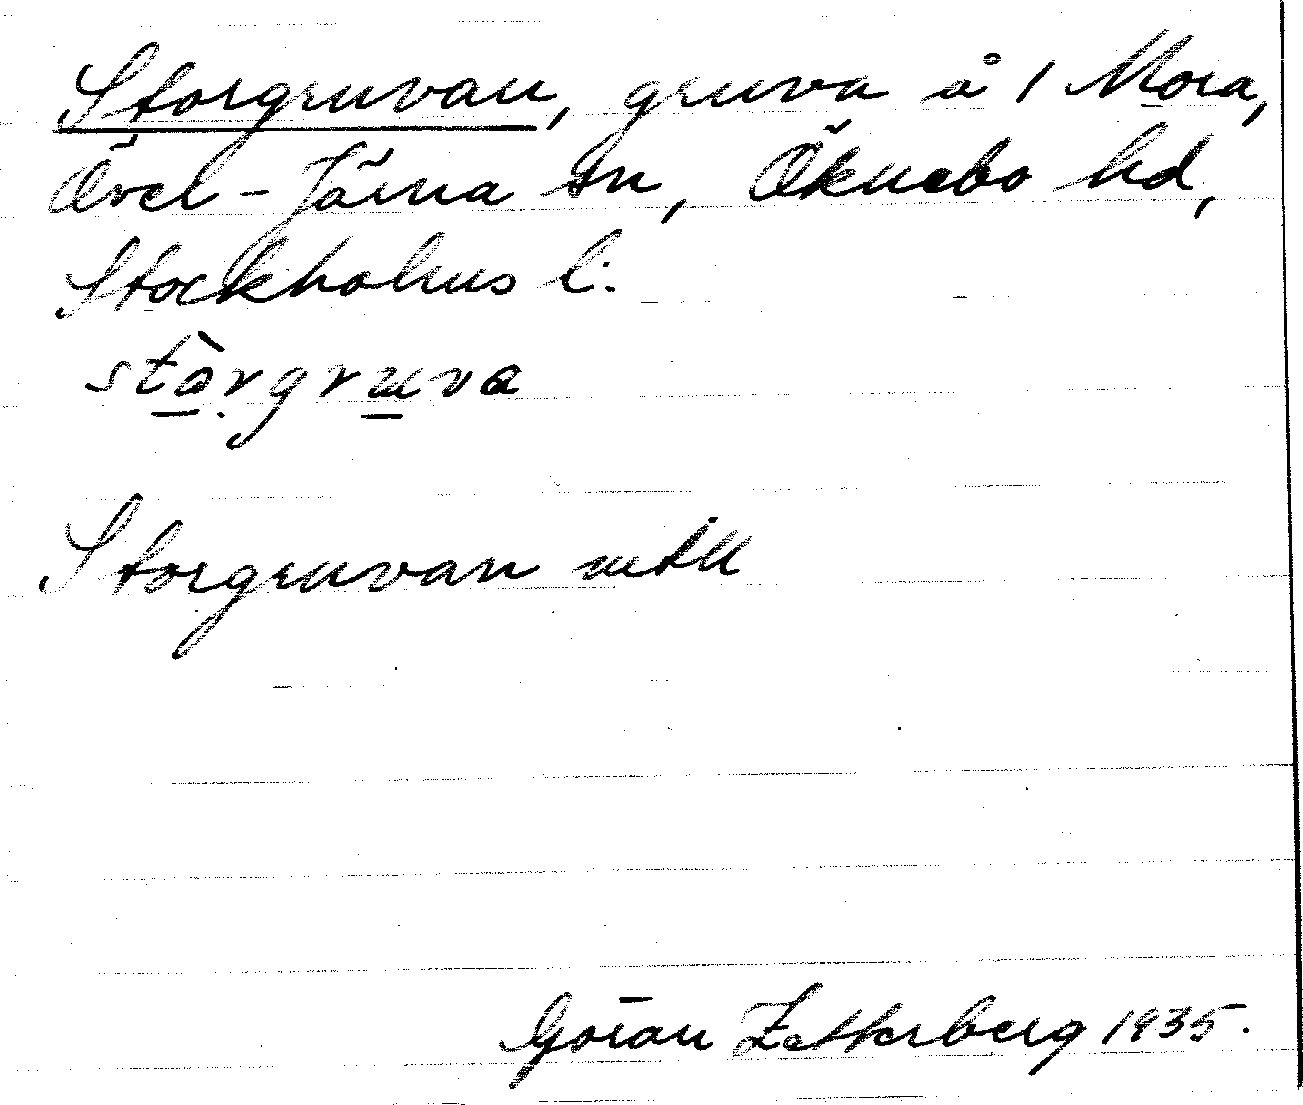 Storgruvan, gruva å 1 Mora,
Över-Järna sn, Öknebo hd,
Stockholms l.
stòrgruva
Storgruvan mtll
Göran Zetterberg 1935.